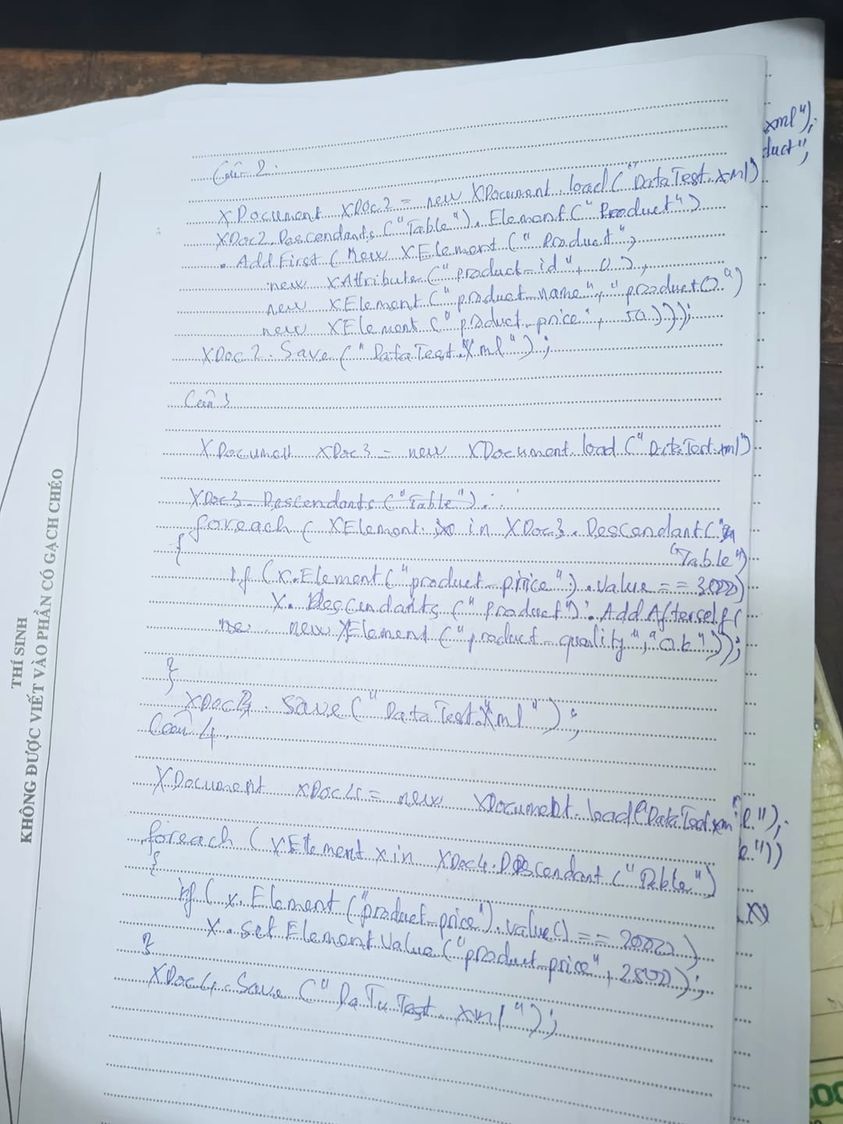 Câu 2.
XDocument XDoc2 = new XDocument.load("DataTest.xml")
XDoc2.Descendants("Table").Element("Product")
.AddFirst(New XElement("Product",
new XAttribute("product-id", 0),
new XElement("product-name", "product0")
new XElement("product-price", 50)));
XDoc2.Save("DataTest.Xml");
Câu 3
XDocument XDoc3 = new XDocument.load("DataTest.xml")
XDoc3.Descendants("Table").
foreach (XElement x in XDoc3.Descendant("
"Table")
{
if (x.Element("product-price").value == 3000)
X.Descendants("product").AddAfterself(
new XElement("product-quality","ok"));
}
XDoc3.save("DataTest.Xml");
Câu 4
XDocument XDoc4 = new XDocument.load("DataTest.xml");
foreach (XElement x in XDoc4.Descendant("Table")
{
if (x.Element("product-price").value() == 2000)
X.setElementValue("product-price", 2500);
}
XDoc4.Save("DaTaTest.xml");
xml");
duct",
l");
e"))
THÍ SINH
KHÔNG ĐƯỢC VIẾT VÀO PHẦN CÓ GẠCH CHÉO